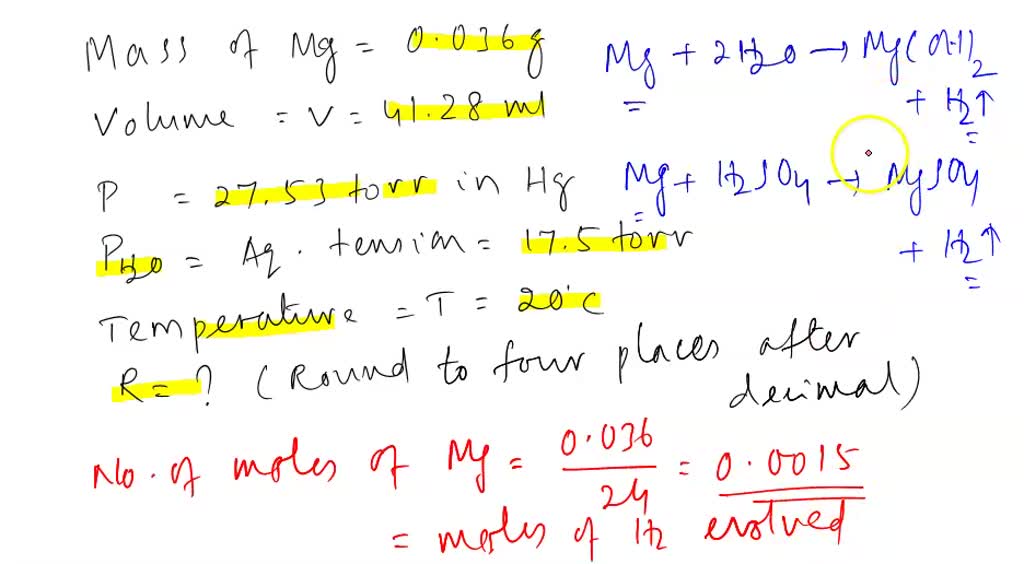 Mass of Mg = 0.036g
Volume = V = 41.28 ml
P = 27.53 torr in Hg
PH2O = Aq. tension = 17.5 torr
Temperature = T = 20°C
R = ? (Round to four places after decimal)
Mg + 2H2O → Mg(OH)2
+ H2↑
=
=
Mg + H2SO4 → MgSO4
=
+ H2↑
=
No. of moles of Mg = 0.036/24 = 0.0015
= moles of H2 evolved